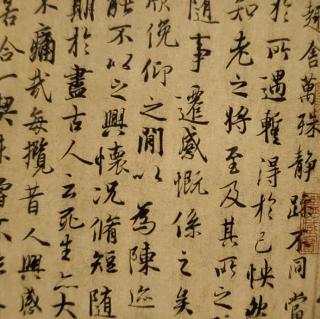 趣舍萬殊靜躁不同當
於所遇蹔得於己怏然
知老之將至及其所之
隨事遷感慨係之矣
欣俛仰之閒以為陳迹
能不以之興懷況脩短隨
期於盡古人云死生亦大
不痛哉每攬昔人興感
若合一契未嘗不